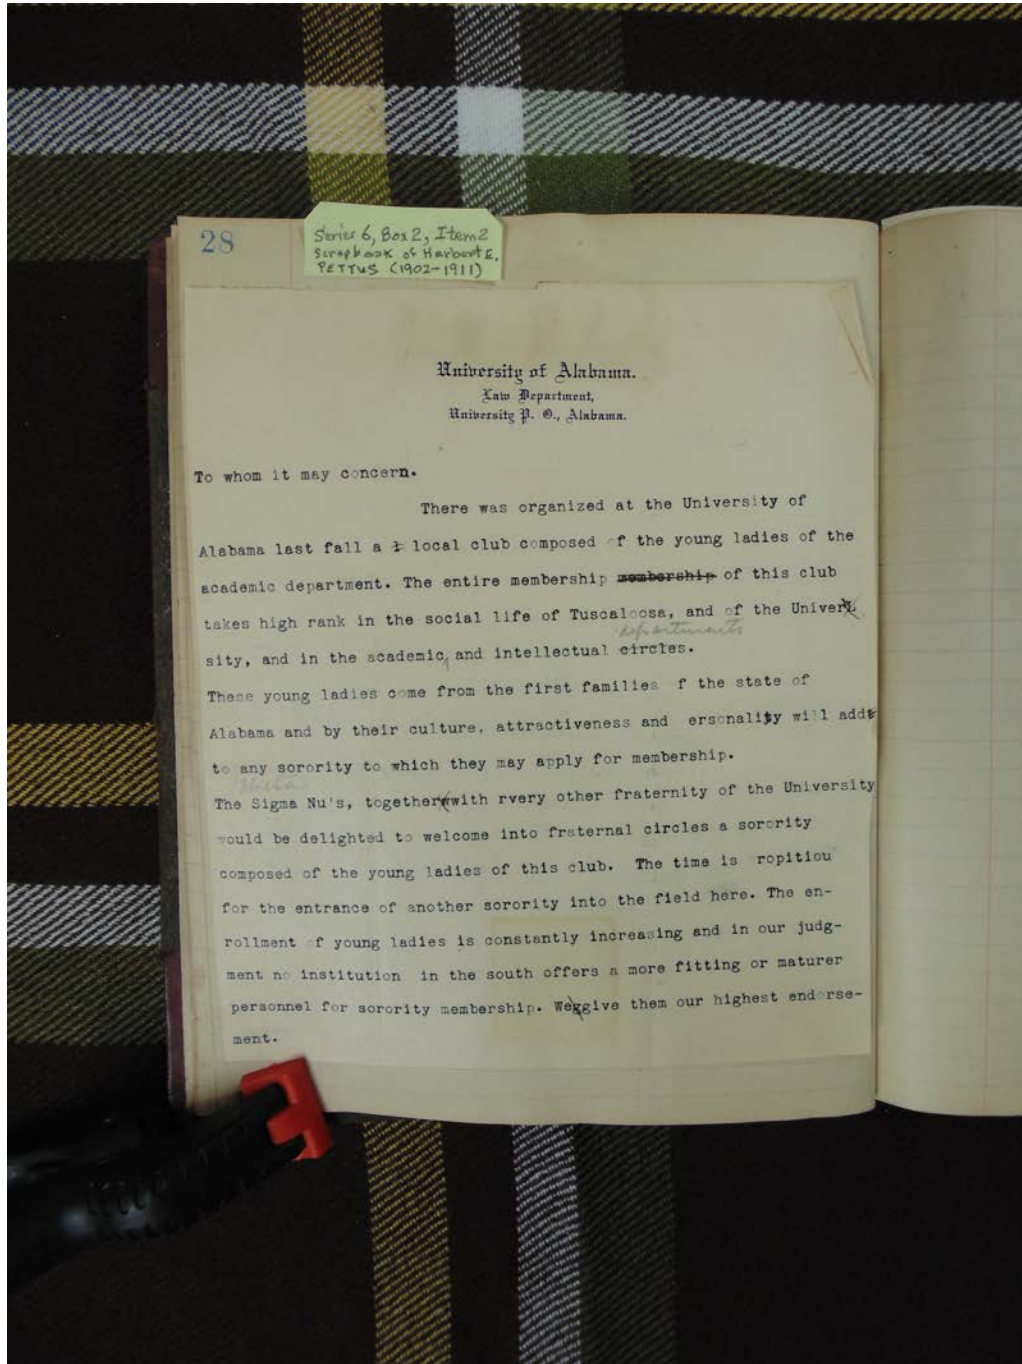 28
Series 6, Box 2, Item 2
Scrapbook of Herbert E.
PETTUS (1902-1911)
University of Alabama.
Law Department,
University P. O., Alabama.
To whom it may concern.
There was organized at the University of
Alabama last fall a local club composed of the young ladies of the
academic department. The entire membership membership of this club
takes high rank in the social life of Tuscaloosa, and of the Univer
departments
sity, and in the academic, and intellectual circles.
These young ladies come from the first families f the state of
Alabama and by their culture, attractiveness and ersonality will add
to any sorority to which they may apply for membership.
The Sigma Nu's, together with rvery other fraternity of the University
would be delighted to welcome into fraternal circles a sorority
composed of the young ladies of this club. The time is ropitiou
for the entrance of another sorority into the field here. The en-
rollment of young ladies is constantly increasing and in our judg-
ment no institution in the south offers a more fitting or maturer
personnel for sorority membership. We give them our highest endorse-
ment.